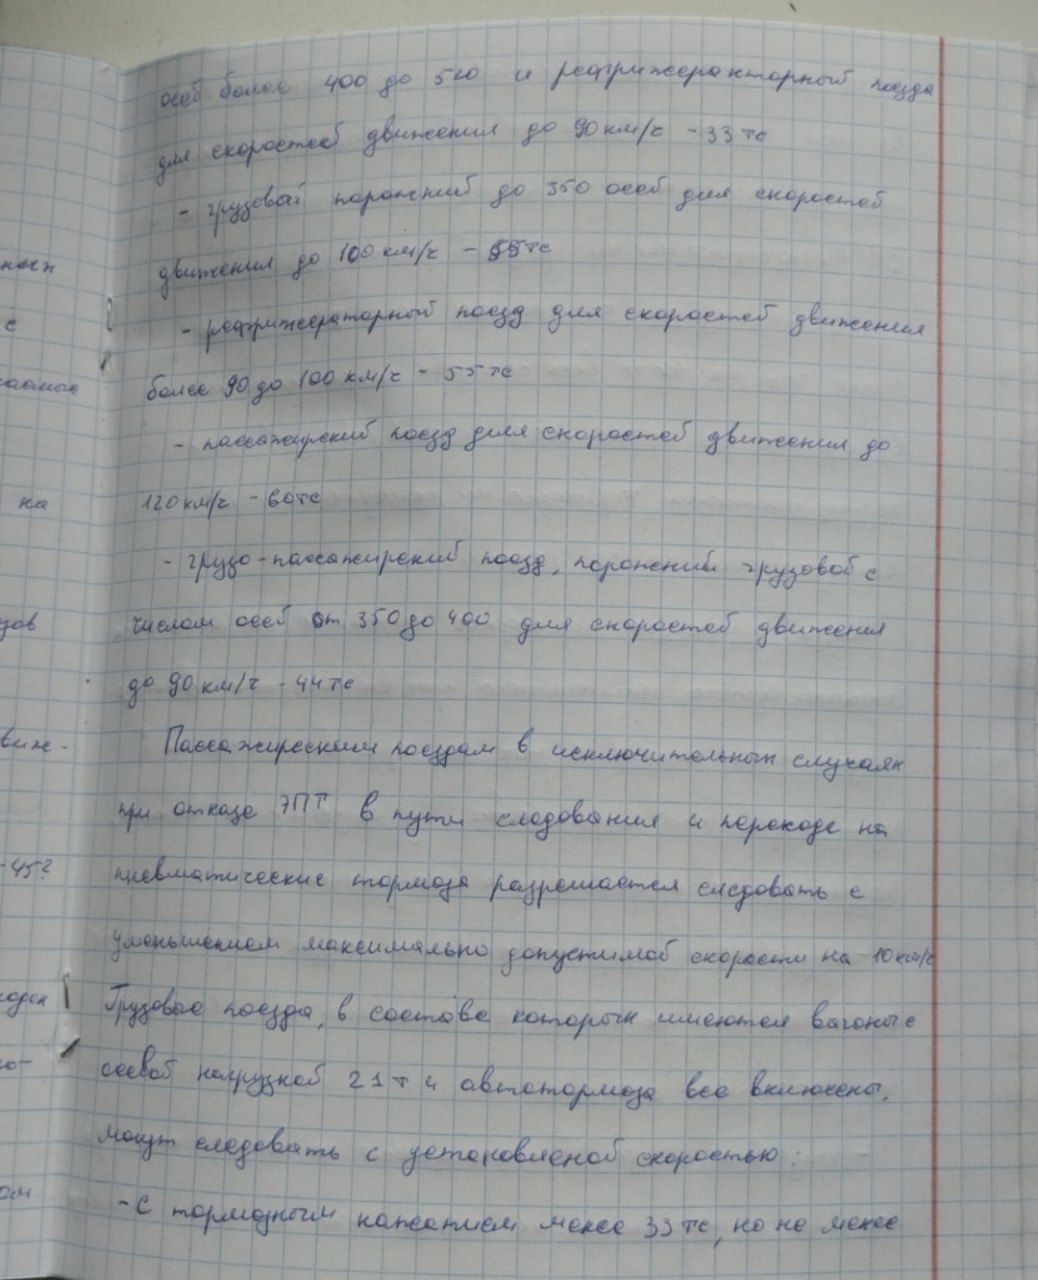 осей более 400 до 520 и рефрижераторный поезда
для скоростей движения до 90 км/ч - 33 тс
- грузовой порожний до 350 осей для скоростей
движения до 100 км/ч - 55 тс
- рефрижераторный поезд для скоростей движения
более 90 до 100 км/ч - 55 тс
- пассажирский поезд для скоростей движения до
120 км/ч - 60 тс
- грузо-пассажирский поезд, порожний грузовой с
числом осей от 350 до 400 для скоростей движения
до 90 км/ч - 44 тс
Пассажирским поездам в исключительных случаях
при отказе ЭПТ в пути следования и переходе на
пневматические тормоза разрешается следовать с
уменьшением максимально допустимой скорости на 10 км/ч
Грузовые поезда, в составе которых имеются вагоны с
осевой нагрузкой 21 т и автотормоза все включены,
могут следовать с установленой скоростью:
- С тормозным нажатием менее 33 тс, но не менее
на
зов
движ-
-45?